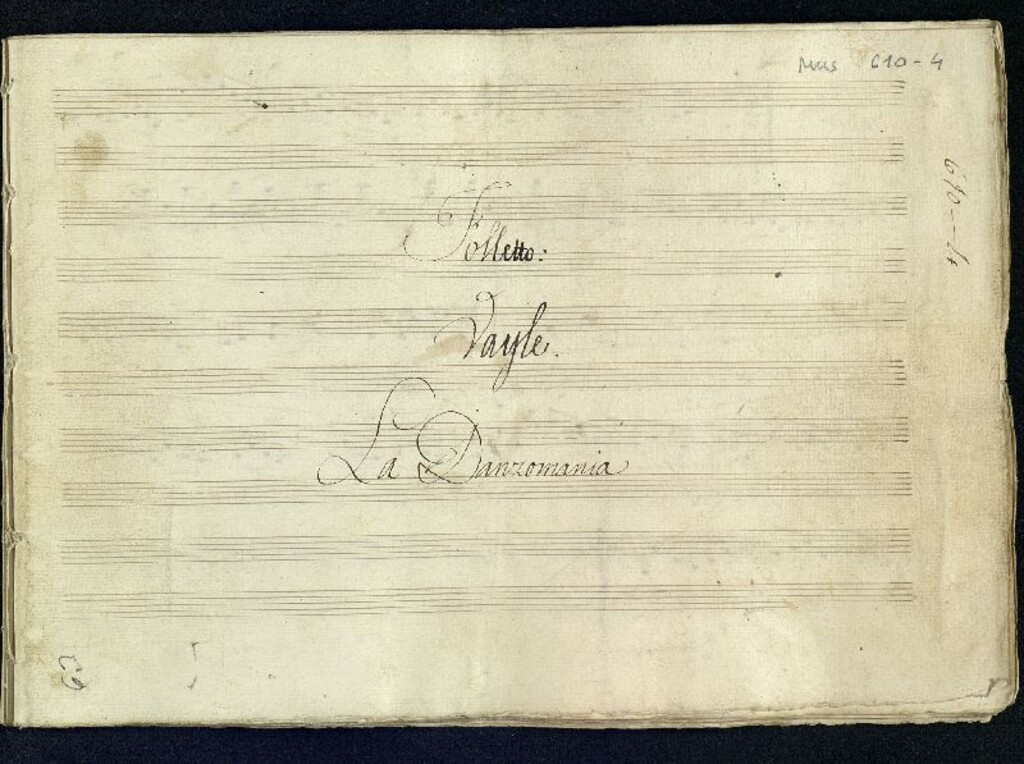 Mus 610-4
610-4
Folletto:
Vayle.
La Danzomania